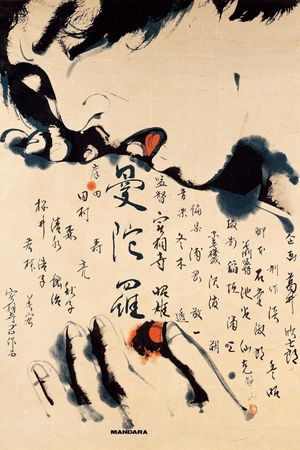 企画 葛井欣士郎
脚本 石堂淑朗
美術 池谷仙克
撮影 稲垣涌三
編集 浦岡敬一
音楽 冬木透
監督 実相寺昭雄
曼陀羅
岸田森
田村亮
清水紘治
桜井浩子
森秋子
若林美宏
実相寺プロ作品
MANDARA